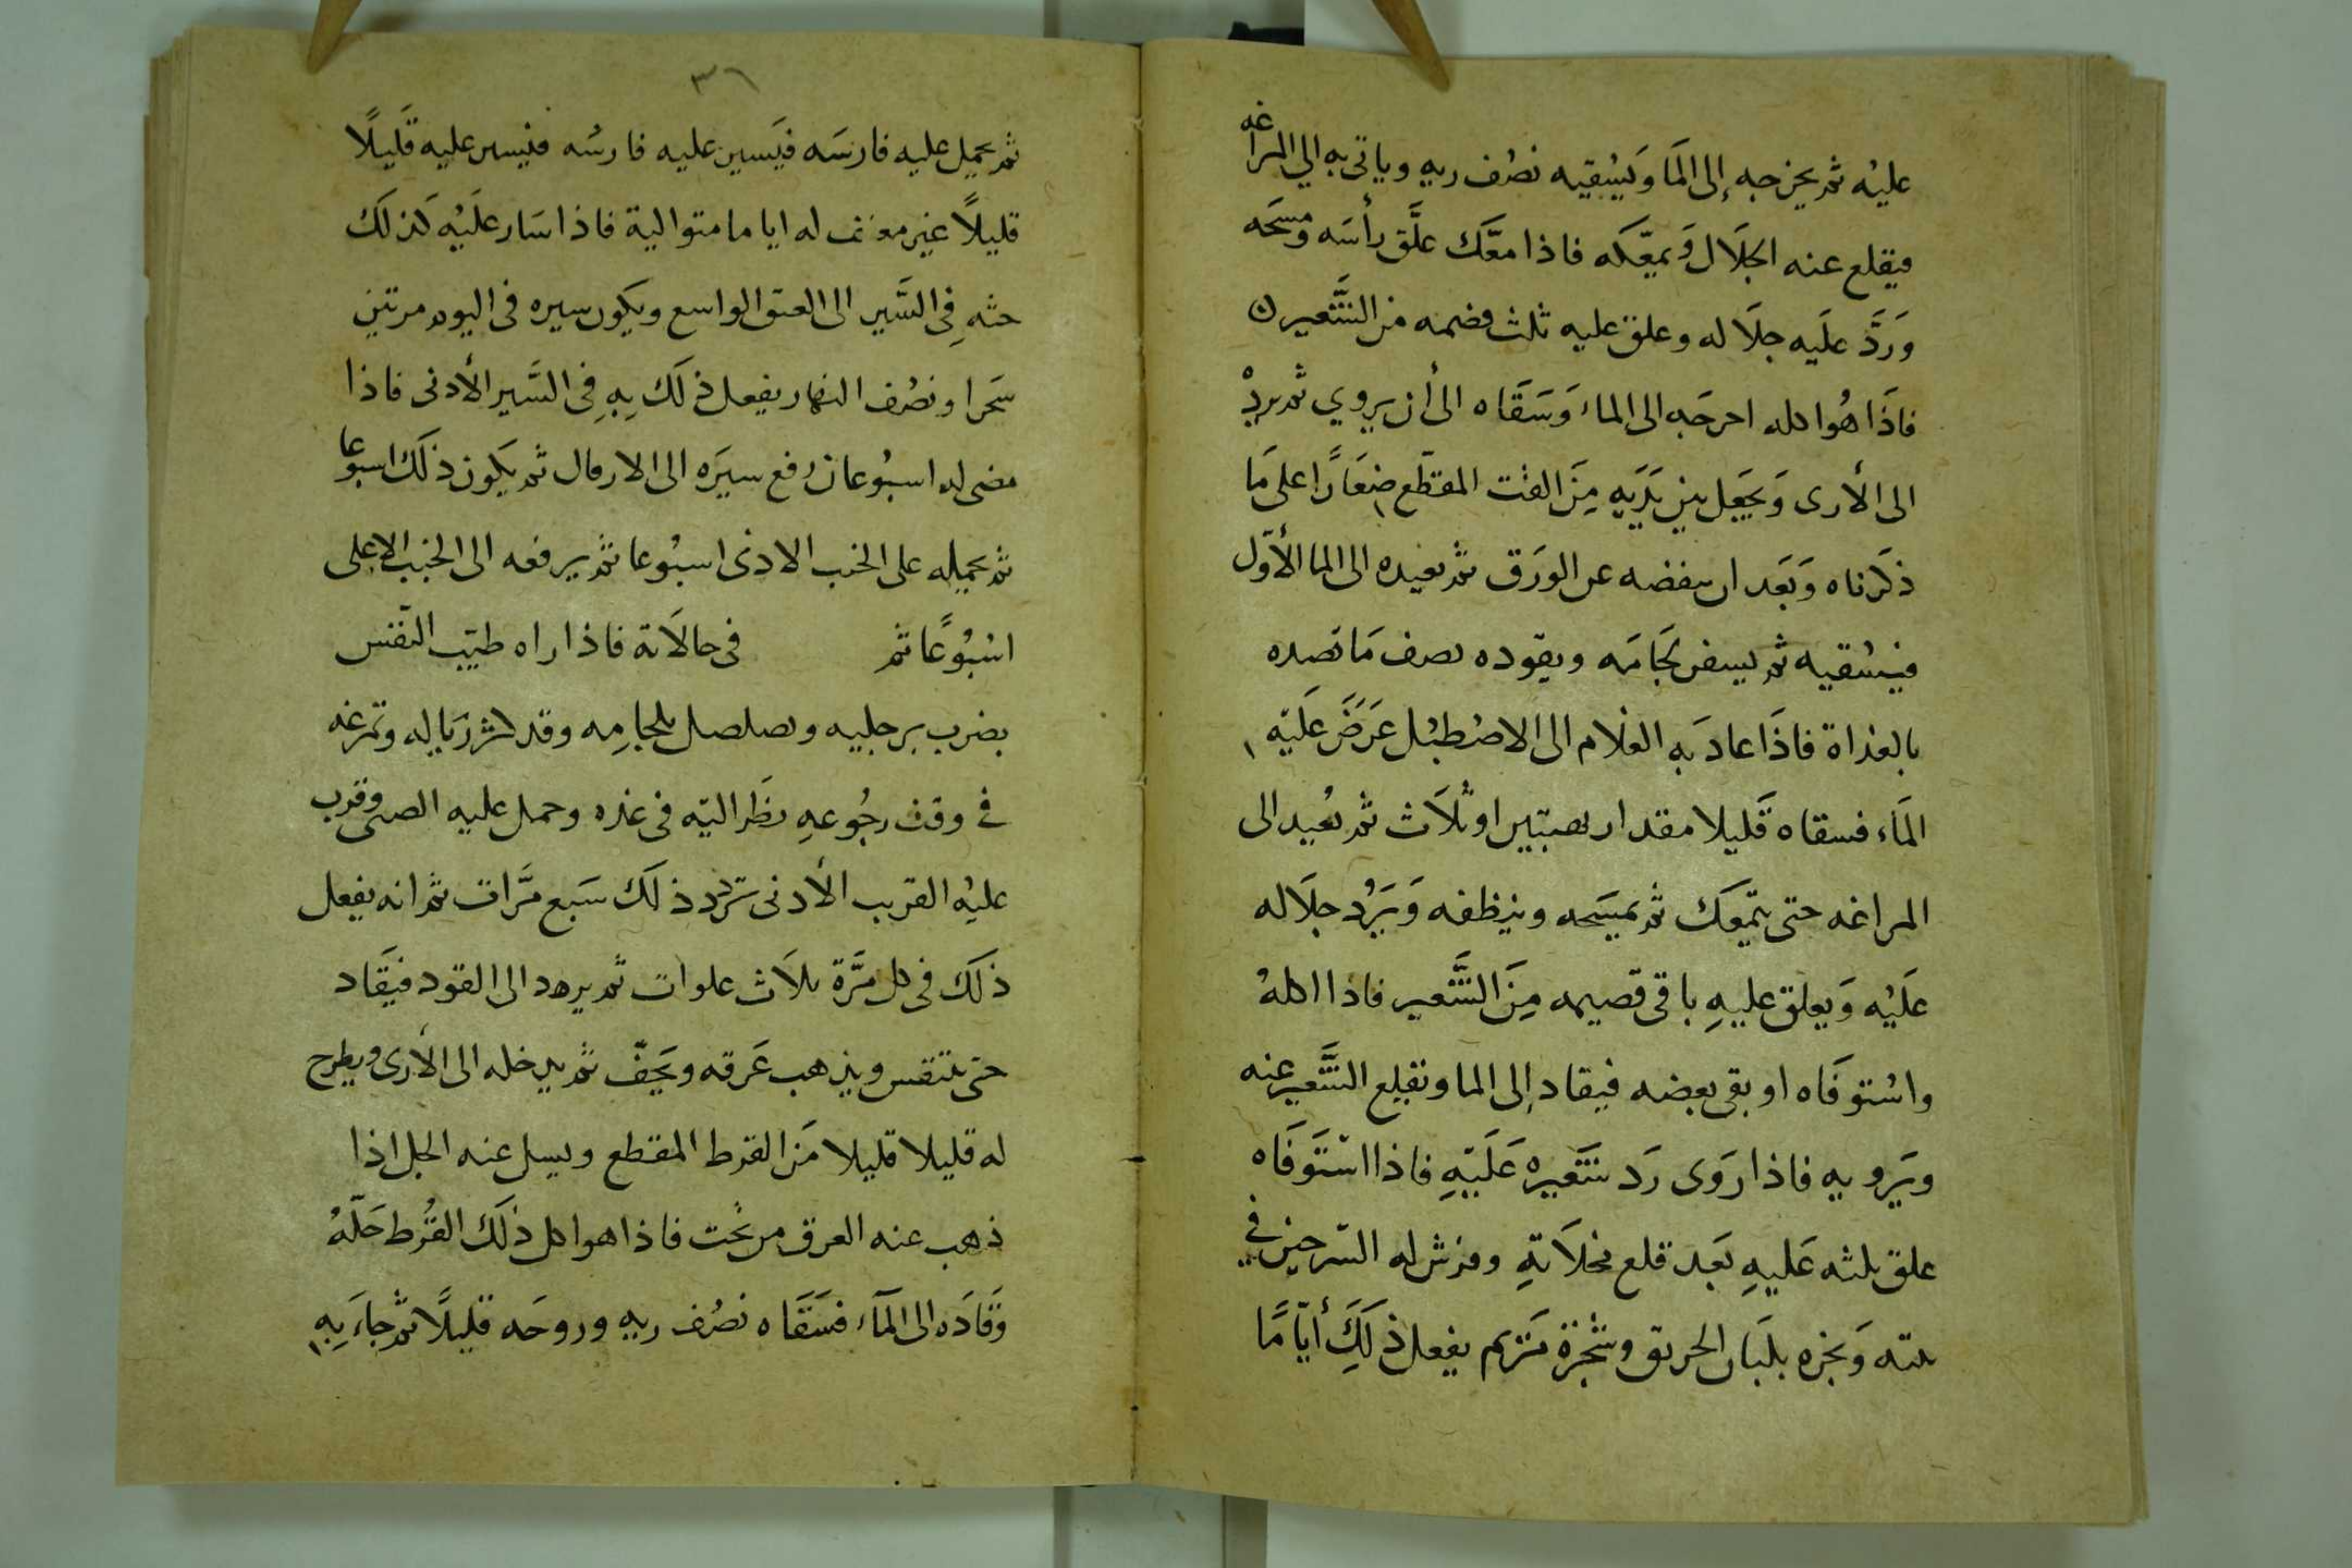 عليْه ثم يخرجه إلى المَا وَيسْقيه نصْف ريهِ وياتى به الي المراغه
فيقلع عنه الجلَال وَيمعّكه فاذا معَّك علَّق رأسَه ومسحَه
وَردَّ علَيه جلَاله وعلق عليه ثلث قضمه من الشَّعير ن
فاذَا هُو اكله اخرجَه الى الماء وَسَقَاه الى أن يروي ثم يردْ
الى الأرى وَيجعَل بين يَدَيهِ مِنَ الفت المقطّع صغَارًا على مَا
ذكَرناه وَبَعَد ان ينفضه عن الورَق ثم يعيده الى الما الأوّل
فيسْقيه ثم يسفر لجَامَه ويقوده نصف مَا قصده
بالغداة فاذَا عادَ بهِ الغلام الى الاصْطبْل عَرَضَ عَليَه
المَاء فسقاه قَليلا مقدار نصبتين او ثلَاث ثم يُعيد الى
المراغه حتى يتمّعك ثم يمسَحه وينظفه وَيَرُد جلَاله
علَيْه وَيعلق عليهِ باقى قصيمه مِنَ الشَّعير فاذا اكلهُ
واسْتوفَاه او بقى بعضه فيقاد إلى الما وتقلع الشَّعير عنه
ويَرويه فاذا روَى رَد شَعيره عَلَيهِ فاذا استَوفَاه
علق ثلثه عَليهِ بعَد قلع مخلَاتهِ وفرش له السّرجين في
بيته وَبخره بلبَان الحريق وشجرة مَريم يفعل ذَلكَِ أيّامًا
٣٦
ثم يحمِل عليه فارسَه فيَسير عليه فارسُه فيسير عليه قَليلًا
قليلًا غير معنف له اياما متوالية فاذا سَار علَيْه كَذلكَ
حثهِ فِى السَّير الى العنق الواسع ويكون سيره فى اليوم مرتين
سَحرا ونصْف النهار يفعل ذلكَ بِهِ فِى السَّير الأدنى فاذا
مضى له اسبُوعان رفع سيرَه الى الارقال ثم يَكون ذلكَ اسبوعا
ثم يحمله على الخبب الادنى اسبُوعا ثم يرفعه الى الخبب الاعلى
اسْبُوعًا ثم فى حالَاته فاذا راه طيّب النفس
يضرب برجليه ويصلصل بلجامِه وقد كثر زبَاله وتمرغه
في وقت رجُوعهِ نظَر اليَه فى غده وحمل عليه الصبى وقرب
عليْه القريب الأدنى تردد ذلكَ سَبع مَّرات ثم انه يفعل
ذلَكَ فى كل مَّرة ثلَاث علوات ثم يرد الى القود فيَقَاد
حتى يتنفس ويذهب عَرقه ويَجفّ ثم يدخله الى الأرى ويطرح
له قليلا قليلا مَن القرط المقطع ويسل عنه الجل اذا
ذهب عنه العرق من تحْت فاذا هو اكل ذلَكَ القُرط حَلّهُ
وَقادَه الى المَآء فسَقَاه نصْف ريهِ وروحَه قليلًا ثم جاءَ بِهِ